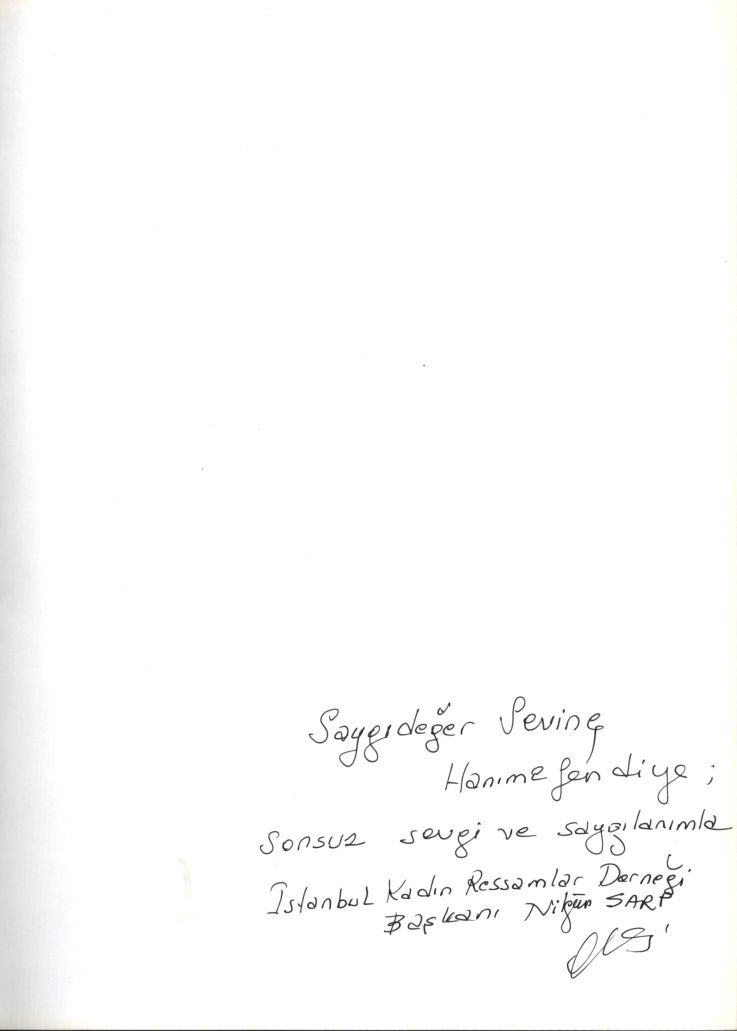 Saygıdeğer Sevinç
Hanımefendiye ;
sonsuz sevgi ve saygılarımla
İstanbul Kadın Ressamlar Derneği
Başkanı Nilgün SARP